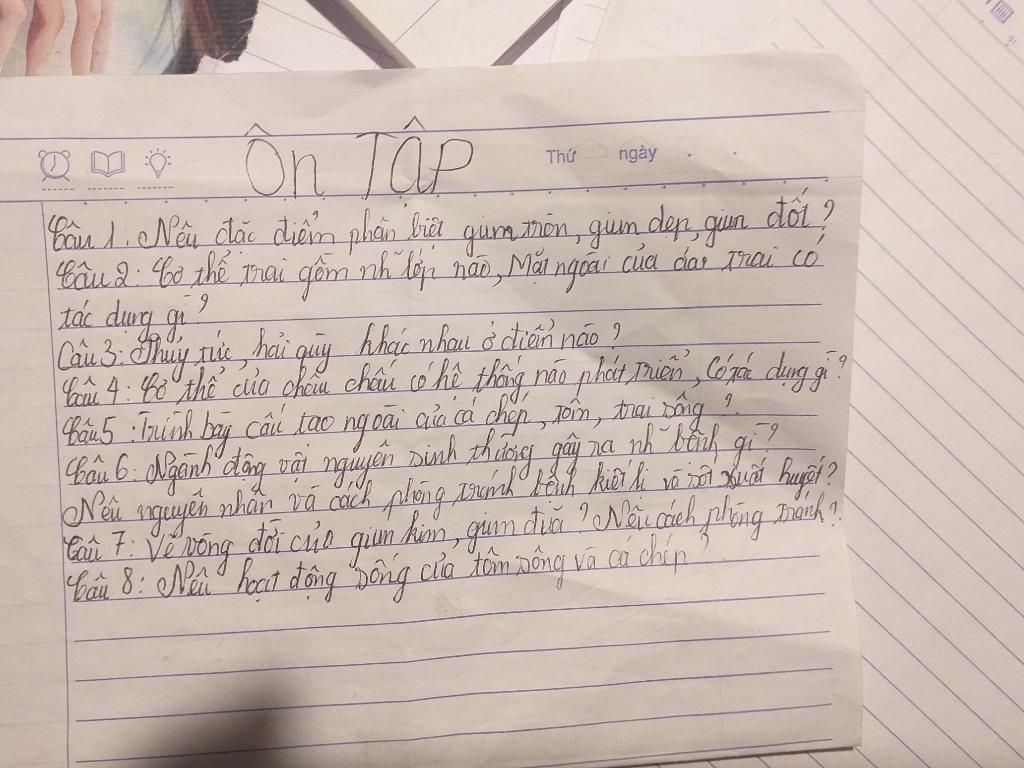 Ôn TẬP
Thứ ngày
Câu 1: Nêu đặc điểm phân biệt giun tròn, giun dẹp, giun đốt?
Câu 2: Cơ thể trai gồm nh~ lớp nào, Mặt ngoài của áo trai có
tác dụng gì?
Câu 3: Thuỷ tức, hải quỳ khác nhau ở điển nào?
Câu 4: Cơ thể của châu chấu có hệ thống nào phát triển, Có tác dụng gì?
Câu 5: Trình bày cấu tạo ngoài của cá chép, tôm, trai sông?
Câu 6: Ngành động vật nguyên sinh thường gây ra nh~ bệnh gì?
Nêu nguyên nhân và cách phòng tránh bệnh kiết lị và sốt xuất huyết?
Câu 7: Vẽ vòng đời của giun kim, giun đũa? Nêu cách phòng tránh?
Câu 8: Nêu hoạt động sống của tôm sông và cá chép?